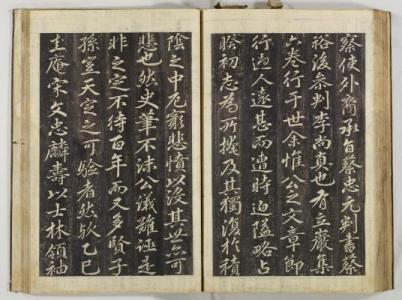 察使外裔承旨蔡忠元判書蔡
裕後叅判李尚真也有立巖集
六卷行于世余惟公之文章節
行過人遠甚而遭時迫隘略占
暌初志為所擢及其獨復於積
陰之中厄窮悲憤以沒其世可
悲也然史筆不沫公議難誣是
非之定不待百年而又多賢子
孫室天定之可驗者然欤乙巳
圭庵宋文忠麟壽以士林領袖